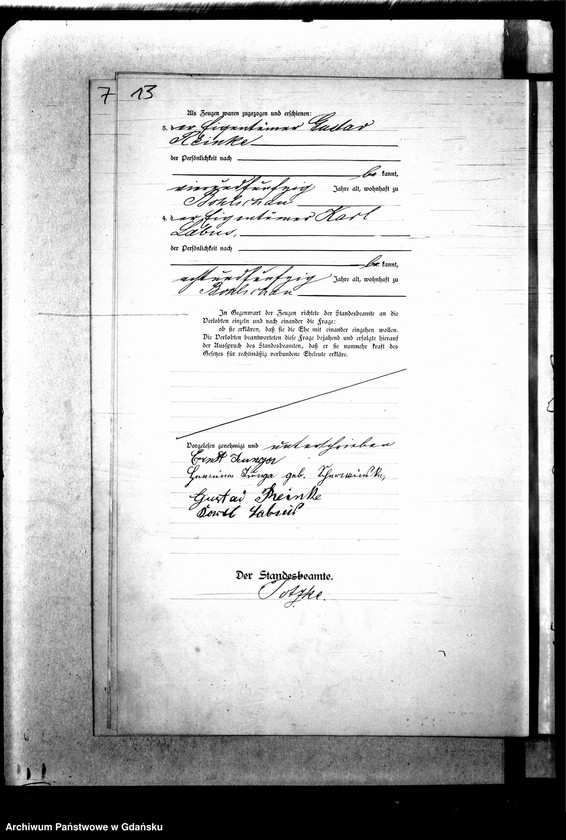 7 13
Als Zeugen waren zugezogen und erschienen:
3. der Eigentümer Gustav
Reinke
der Persönlichkeit nach
be kannt,
vierundfünfzig Jahre alt, wohnhaft zu
Bohlschau
4. der Eigentümer Karl
Labus,
der Persönlichkeit nach
be kannt,
achtundfünfzig Jahre alt, wohnhaft zu
Bohlschau
In Gegenwart der Zeugen richtete der Standesbeamte an die
Verlobten einzeln und nach einander die Frage:
ob sie erklären, daß sie die Ehe mit einander eingehen wollen.
Die Verlobten beantworteten diese Frage bejahend und erfolgte hierauf
der Ausspruch des Standesbeamten, daß er sie nunmehr kraft des
Gesetzes für rechtmäßig verbundene Eheleute erkläre.
Vorgelesen genehmigt und unterschrieben
Ernst
geb.
Gustav Reinke
Karl Labus
Der Standesbeamte.
Archiwum Państwowe w Gdańsku